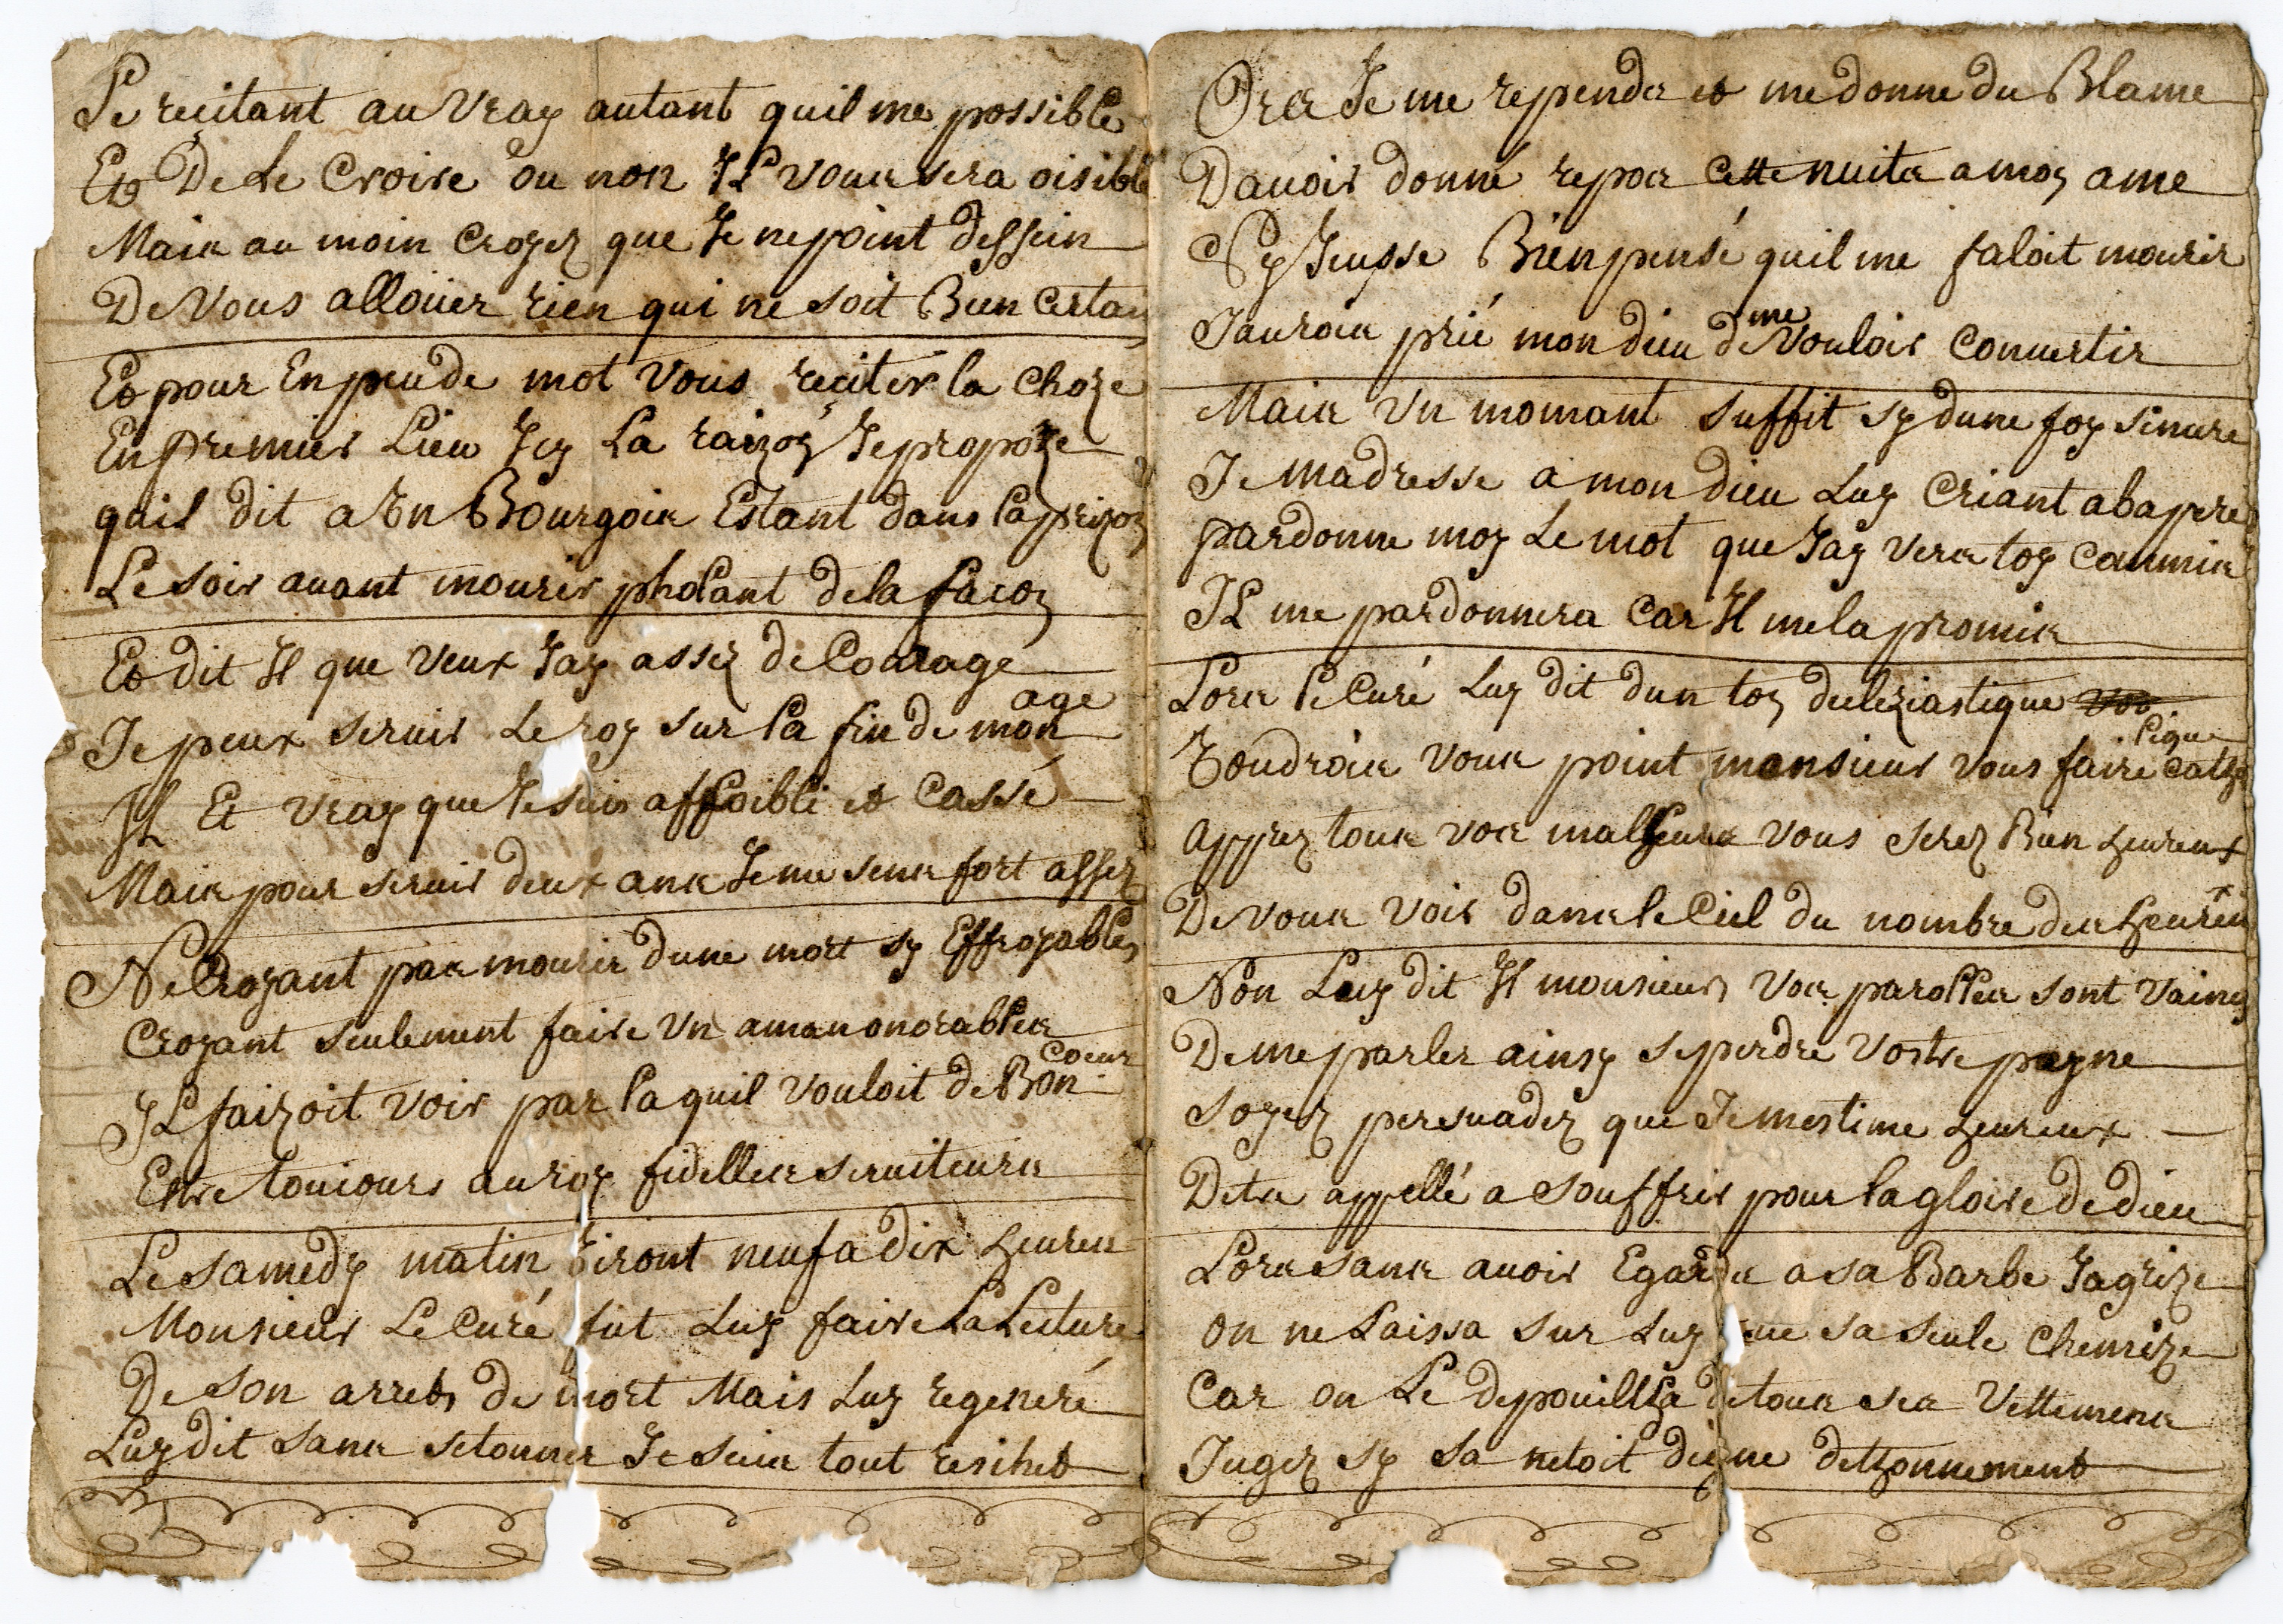 Le recitant au vray autant quil me possible
Et De Le Croire ou non Il vous sera oisible
Mais au moin Croyez que Je nepoint dessein
De Vous alloüer rien qui ne soit Bien Certain
Et pour En peu de mot Vous reciter la Choze
En premier Lieu Icy La raizon Je propoze
quil dit a Un Bourgois Estant dans la prizon
Le soir auant mourir parlant de la facon
Et dit Il que veux Jay assez de Courage
Je peux seruir Le roy sur la fin de mon age
Il Et vray que Je suis affoibli et Cassé
Mais pour seruir deux ans Je me sens fort assez
Ne Croyant pas mourir dune mort sy Effroyables
Croyant seulement faire Vn aman onorables
Il faizoit voir par la quil vouloit de Bon Coeur
Entre touiours au roy fidelles seruiteurs
Le samedy matin Viront neuf a dix heures
Monsieur Le Curé fut Luy faire La Lecture
De son arrets de mort Mais Luy regeneré
Luy dit sans setonner Je suis tout resihet
Ors Je me repends et me donne du Blame
Dauoir donné repos Cette nuits a moy ame
Sy Jeusse Bien pensé quil me faloit mourir
Jaurois prié mon dieu de me Vouloir Conuertir
Mais vn momant suffit sy dune foy sincere
Je madresse a mon dieu Luy Criant aba pere
pardonne moy Le mot que Jay vers toy Commis
Il me pardonnera Car Il me la promis
Lors le Curé Luy dit dun ton decleziastique
Voudrois vous point monsieur vous faire Catholique
apprez tous vos malheurs vous serez Bien heureux
De vous voir dans le Ciel du nombre des heureux
Non Luy dit Il monsieur vos parolles sont vaines
De me parler ainsy se perdre vostre payne
soyez persuadez que Je mestime heureux
Detre appellé a souffrir pour la gloire de dieu
Lors sans auoir Egards a sa Barbe Jagrize
On ne Laissa sur Luy que sa seule Chemize
Car on Le depouillia de tous ses Vettemens
Jugez sy sa netoit digne dettonnement